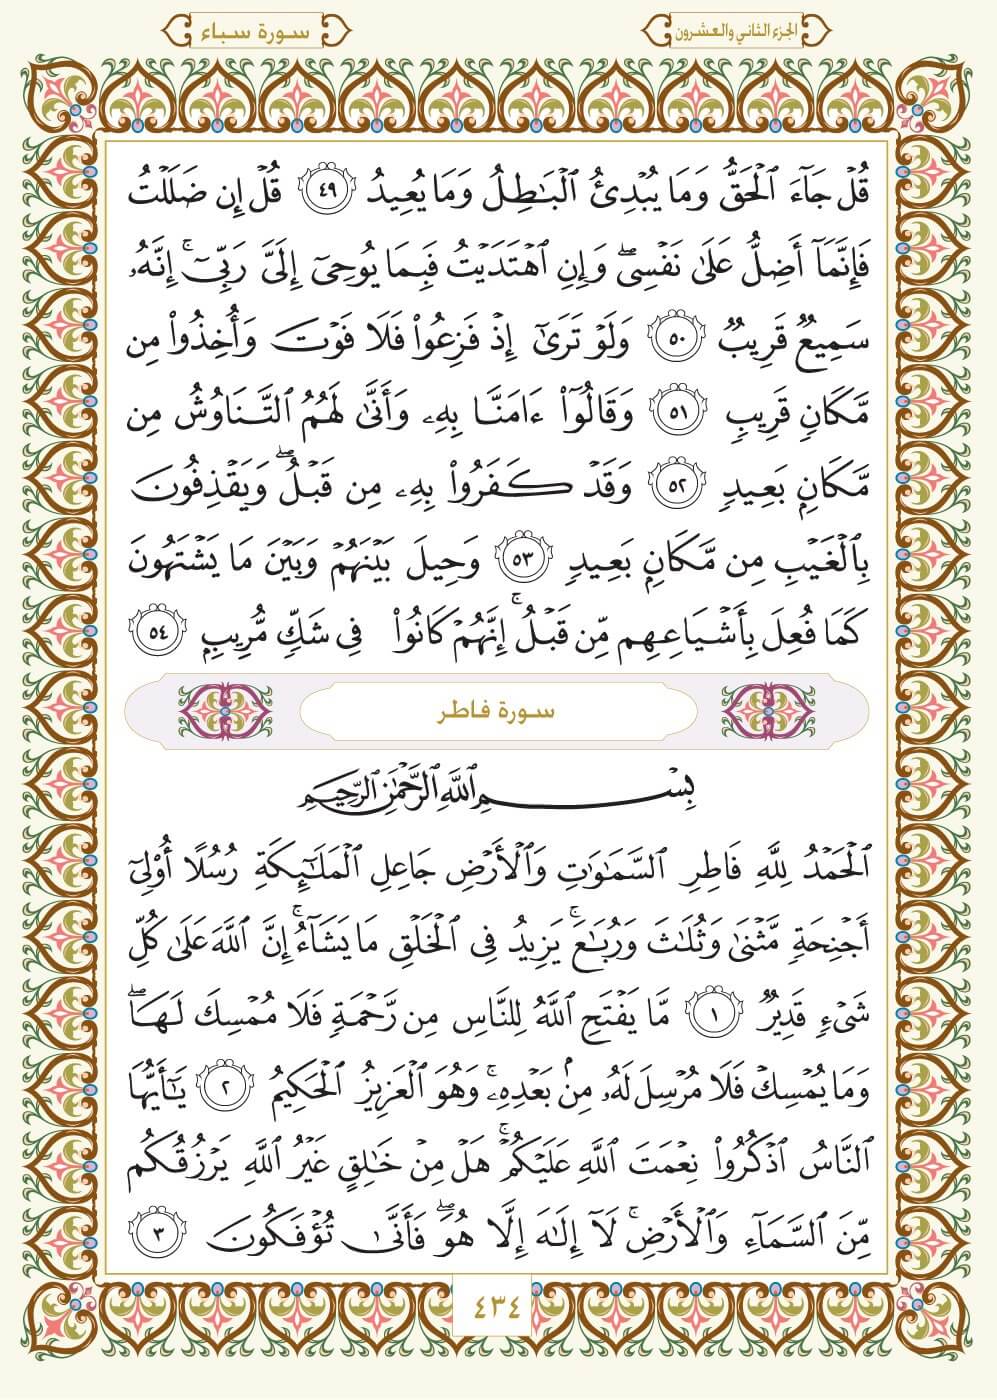 الجزء الثاني والعشرون
سورة سباء
قُلْ جَآءَ ٱلْحَقُّ وَمَا يُبْدِئُ ٱلْبَٰطِلُ وَمَا يُعِيدُ ٤٩ قُلْ إِن ضَلَلْتُ
فَإِنَّمَآ أَضِلُّ عَلَىٰ نَفْسِىۖ وَإِنِ ٱهْتَدَيْتُ فَبِمَا يُوحِىٓ إِلَىَّ رَبِّىٓۚ إِنَّهُۥ
سَمِيعٌ قَرِيبٌ ٥٠ وَلَوْ تَرَىٰٓ إِذْ فَزِعُوا۟ فَلَا فَوْتَ وَأُخِذُوا۟ مِن
مَّكَانٍ قَرِيبٍ ٥١ وَقَالُوٓا۟ ءَامَنَّا بِهِۦ وَأَنَّىٰ لَهُمُ ٱلتَّنَاوُشُ مِن
مَّكَانٍۭ بَعِيدٍ ٥٢ وَقَدْ كَفَرُوا۟ بِهِۦ مِن قَبْلُۖ وَيَقْذِفُونَ
بِٱلْغَيْبِ مِن مَّكَانٍۭ بَعِيدٍ ٥٣ وَحِيلَ بَيْنَهُمْ وَبَيْنَ مَا يَشْتَهُونَ
كَمَا فُعِلَ بِأَشْيَاعِهِم مِّن قَبْلُۚ إِنَّهُمْ كَانُوا۟ فِى شَكٍّ مُّرِيبٍۭ ٥٤
سورة فاطر
بِسْمِ ٱللَّهِ ٱلرَّحْمَٰنِ ٱلرَّحِيمِ
ٱلْحَمْدُ لِلَّهِ فَاطِرِ ٱلسَّمَٰوَٰتِ وَٱلْأَرْضِ جَاعِلِ ٱلْمَلَٰٓئِكَةِ رُسُلًا أُو۟لِىٓ
أَجْنِحَةٍ مَّثْنَىٰ وَثُلَٰثَ وَرُبَٰعَۚ يَزِيدُ فِى ٱلْخَلْقِ مَا يَشَآءُۚ إِنَّ ٱللَّهَ عَلَىٰ كُلِّ
شَىْءٍ قَدِيرٌ ١ مَّا يَفْتَحِ ٱللَّهُ لِلنَّاسِ مِن رَّحْمَةٍ فَلَا مُمْسِكَ لَهَاۖ
وَمَا يُمْسِكْ فَلَا مُرْسِلَ لَهُۥ مِنۢ بَعْدِهِۦۚ وَهُوَ ٱلْعَزِيزُ ٱلْحَكِيمُ ٢ يَٰٓأَيُّهَا
ٱلنَّاسُ ٱذْكُرُوا۟ نِعْمَتَ ٱللَّهِ عَلَيْكُمْۚ هَلْ مِنْ خَٰلِقٍ غَيْرُ ٱللَّهِ يَرْزُقُكُم
مِّنَ ٱلسَّمَآءِ وَٱلْأَرْضِۚ لَآ إِلَٰهَ إِلَّا هُوَۖ فَأَنَّىٰ تُؤْفَكُونَ ٣
٤٣٤